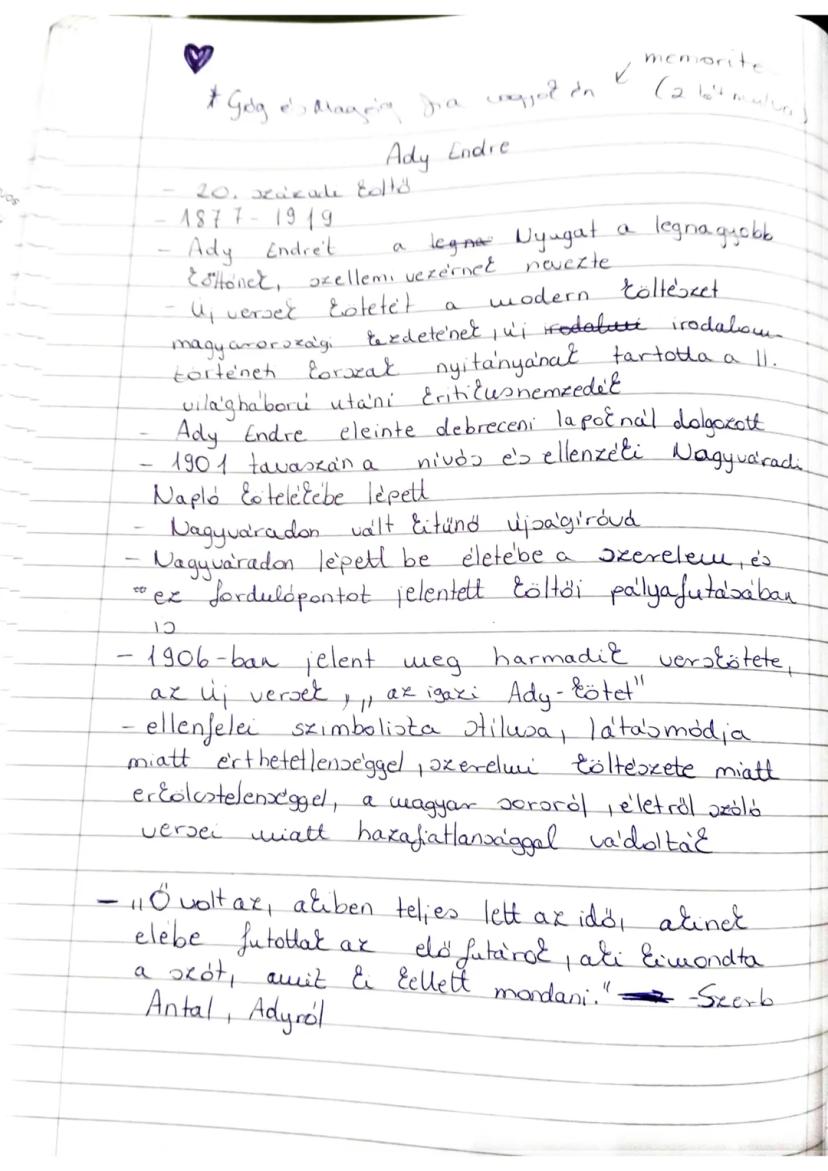 memorite
* Góg és Magóg fia vagyok én ↙ (2
Ady Endre
- 20. százade költő
- 1877-1919
- Ady Endrét a legna Nyugat a legnagyobb
költőnek, szellemi vezérnek nevezte
- Új versek kötetét a modern költészet
magyarországi kezdetének, új irodalmi irodalom-
történeti korszak nyitányának tartotta a II.
világháború utáni kritikusnemzedék
- Ady Endre eleinte debreceni lapoknál dolgozott
- 1901 tavaszán a nívós és ellenzéki Nagyváradi
Napló kötelékébe lépett
- Nagyváradon vált kitűnő újságíróvá
- Nagyváradon lépett be életébe a szerelem, és
ez fordulópontot jelentett költői pályafutásában
is
- 1906-ban jelent meg harmadik verskötete,
az Új versek, „az igazi Ady-kötet"
- ellenfelei szimbolista stílusa, látásmódja
miatt érthetetlenséggel, szerelmi költészete miatt
erkölcstelenséggel, a magyar sorsról, életről szóló
versei miatt hazafiatlansággal vádolták
- „Ő volt az, akiben teljes lett az idő, akinek
elébe futottak az előfutárok, aki kimondta
a szót, amit ki kellett mondani." -Szerb
Antal, Adyról